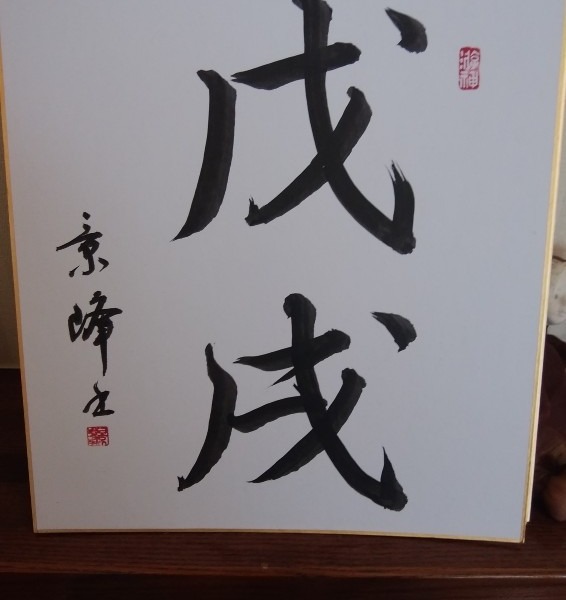 戊
戌
景峰書